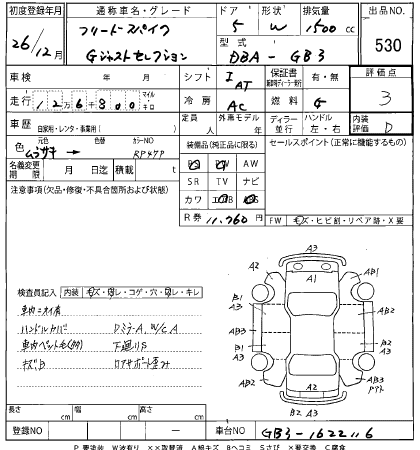 初度登録年月 通称車名・グレード ドア 形状 排気量 出品NO.
26/12月 フリードスパイク 5 W 1500cc 530
Gジャストセレクション 型式 DBA-GB3
車検 年 月 シフト IAT 保証書 有・無 評価点
走行 126,800 マイル キロ 冷房 AC 燃料 G 3
車歴 自家用・レンタ・事業用( ) 定員 人 外車モデル 年 ディーラー 並行 ハンドル 左・右 内装評価 D
色 元色 色替 カラーNO RP47P
装備品(純正品に限る) セールスポイント(正常に機能するもの)
PS PW AW
名義変更期限 月 日迄 積載 t SR TV ナビ
注意事項(欠品・修復・不具合箇所および状態) カワ エアB
R券 11,760円 FW キズ・ヒビ割・リペア跡・X要
A3
A2 A1 AB1
B1 A3 AB1
AB3 AB2
B1 A3 B2 A3
A2 AB3
A2
B2 A3
検査員記入 内装 キズ・汚レ・コゲ・穴・ヌレ・キレ
車内ニオイ有
ハンドルカバー DミラーA、W/C A
車内ペット毛(多) 下廻りS
キズB ロアサポート歪み
長さ cm 幅 cm 高さ cm
登録NO ― 車台NO GB3-1622116
P要塗装 W波有り ××取替済 A線キズ Bヘコミ Sサビ ×要交換 C腐食